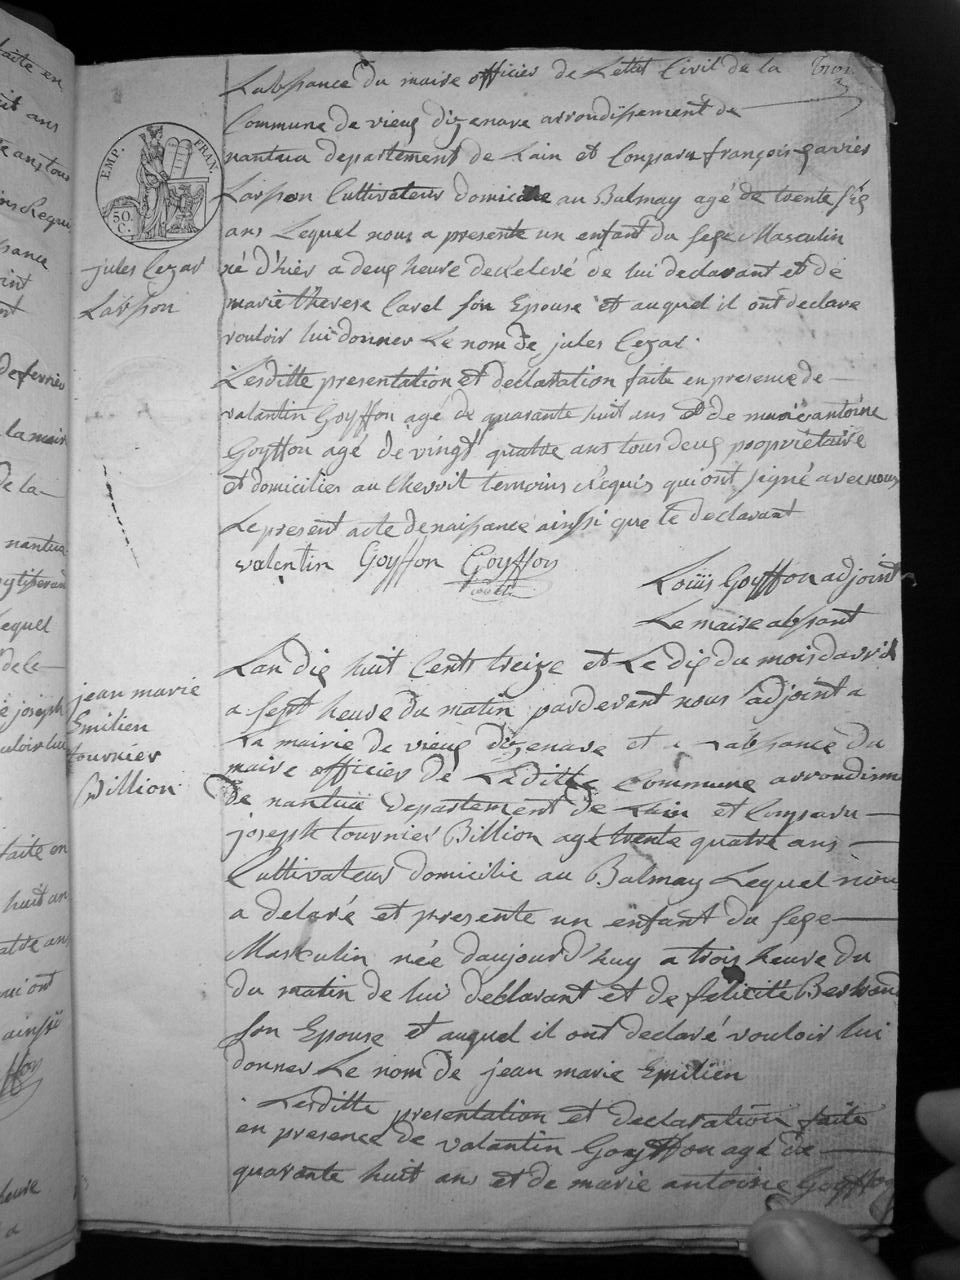 Labssance du maire officier de Letat Civil de la
Commune de vieuq dizenave arrondissement de
nantua departement de Lain et Comparu françois xavier
Larsson Cultivateur domicilie au Balmay agé de trente six
ans Lequel nous a presente un enfant du sexe Masculin
né d'hier a deux heure de Relevé de lui declarant et de
marie therese Carel son Epouse et auquel il ont declare
vouloir lui donner Le nom de jules Cezar.
Lesditte presentation et declaration faite en presence de
valantin Goyffon agé de quarante huit ans et de marie antoine
Goyffon agé de vingt quatre ans tous deux propriétaire
et domicilies au Chevril temoins Requis qui ont signé avec nous
Le present acte de naissance ainssi que le declarant
valentin Goyffon Goyffon
Louis Goyffon adjoint
Le maire abssant
EMP. FRAN.
50. C.
jules Cezar
Larsson
Lan dix huit Cents treize et Le dix du mois davril
a sept heure du matin pardevant nous adjoint a
La mairie de vieuq dizenave et a Labssance du
maire officier de Leditte Commune arrondisme
de nantua departement de Lain et Comparu
joseph tournier Billion agé trente quatre ans
Cultivateur domicilie au Balmay Lequel nou
a delaré et presente un enfant du sexe
Masculin née daujourd'huy a trois heure du
du matin de lui declarant et de felicité Bertrand
son Epouse et auquel il ont declaré vouloir lui
donner Le nom de jean marie Emilien
Lesditte presentation et declaration faite
en presence de valantin Goyffon agé de
quarante huit ans et de marie antoine Goyffon
jean marie
Emilien
tournier
Billion